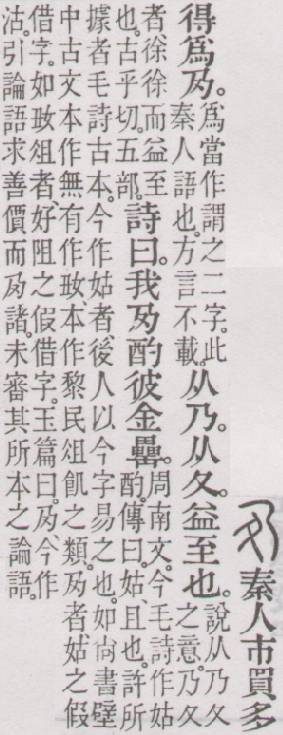 秦人市買多
得爲夃。爲當作謂之二字。此
秦人語也。方言不載。
从乃。从久。益至也。說从乃久
之意。乃久
者、徐徐而益至
也。古乎切。五部。
詩曰。我夃酌彼金罍。周南文。今毛詩作姑
酌。傳曰。姑、且也。許所
據者毛詩古本。今作姑者、後人以今字易之也。如尙書壁
中古文本作無有作、本作黎民俎飢之類。夃者、姑之假
借字。如俎者、好阻之假借字。玉篇曰。夃、今作
沽。引論語求善價而夃諸。未審其所本之論語。